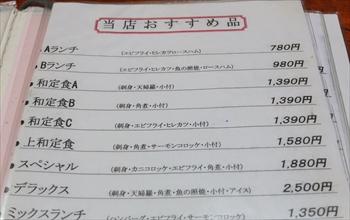 当店おすすめ品
Aランチ (エビフライ・ヒレカツ・ロースハム) 780円
Bランチ (エビフライ・ヒレカツ・魚の照焼・ロースハム) 980円
和定食A (刺身・天婦羅・小付) 1,390円
和定食B (刺身・角煮・小付) 1,390円
和定食C (刺身・エビフライ・ヒレカツ・小付) 1,390円
上和定食 (刺身・角煮・サーモンコロッケ・小付) 1,580円
スペシャル (刺身・カニコロッケ・エビフライ・角煮・小付) 1,880円
デラックス (刺身・天婦羅・角煮・魚の照焼・小付・アイス) 2,500円
ミックスランチ (ハンバーグ・エビフライ・サーモンコロッケ) 1,350円